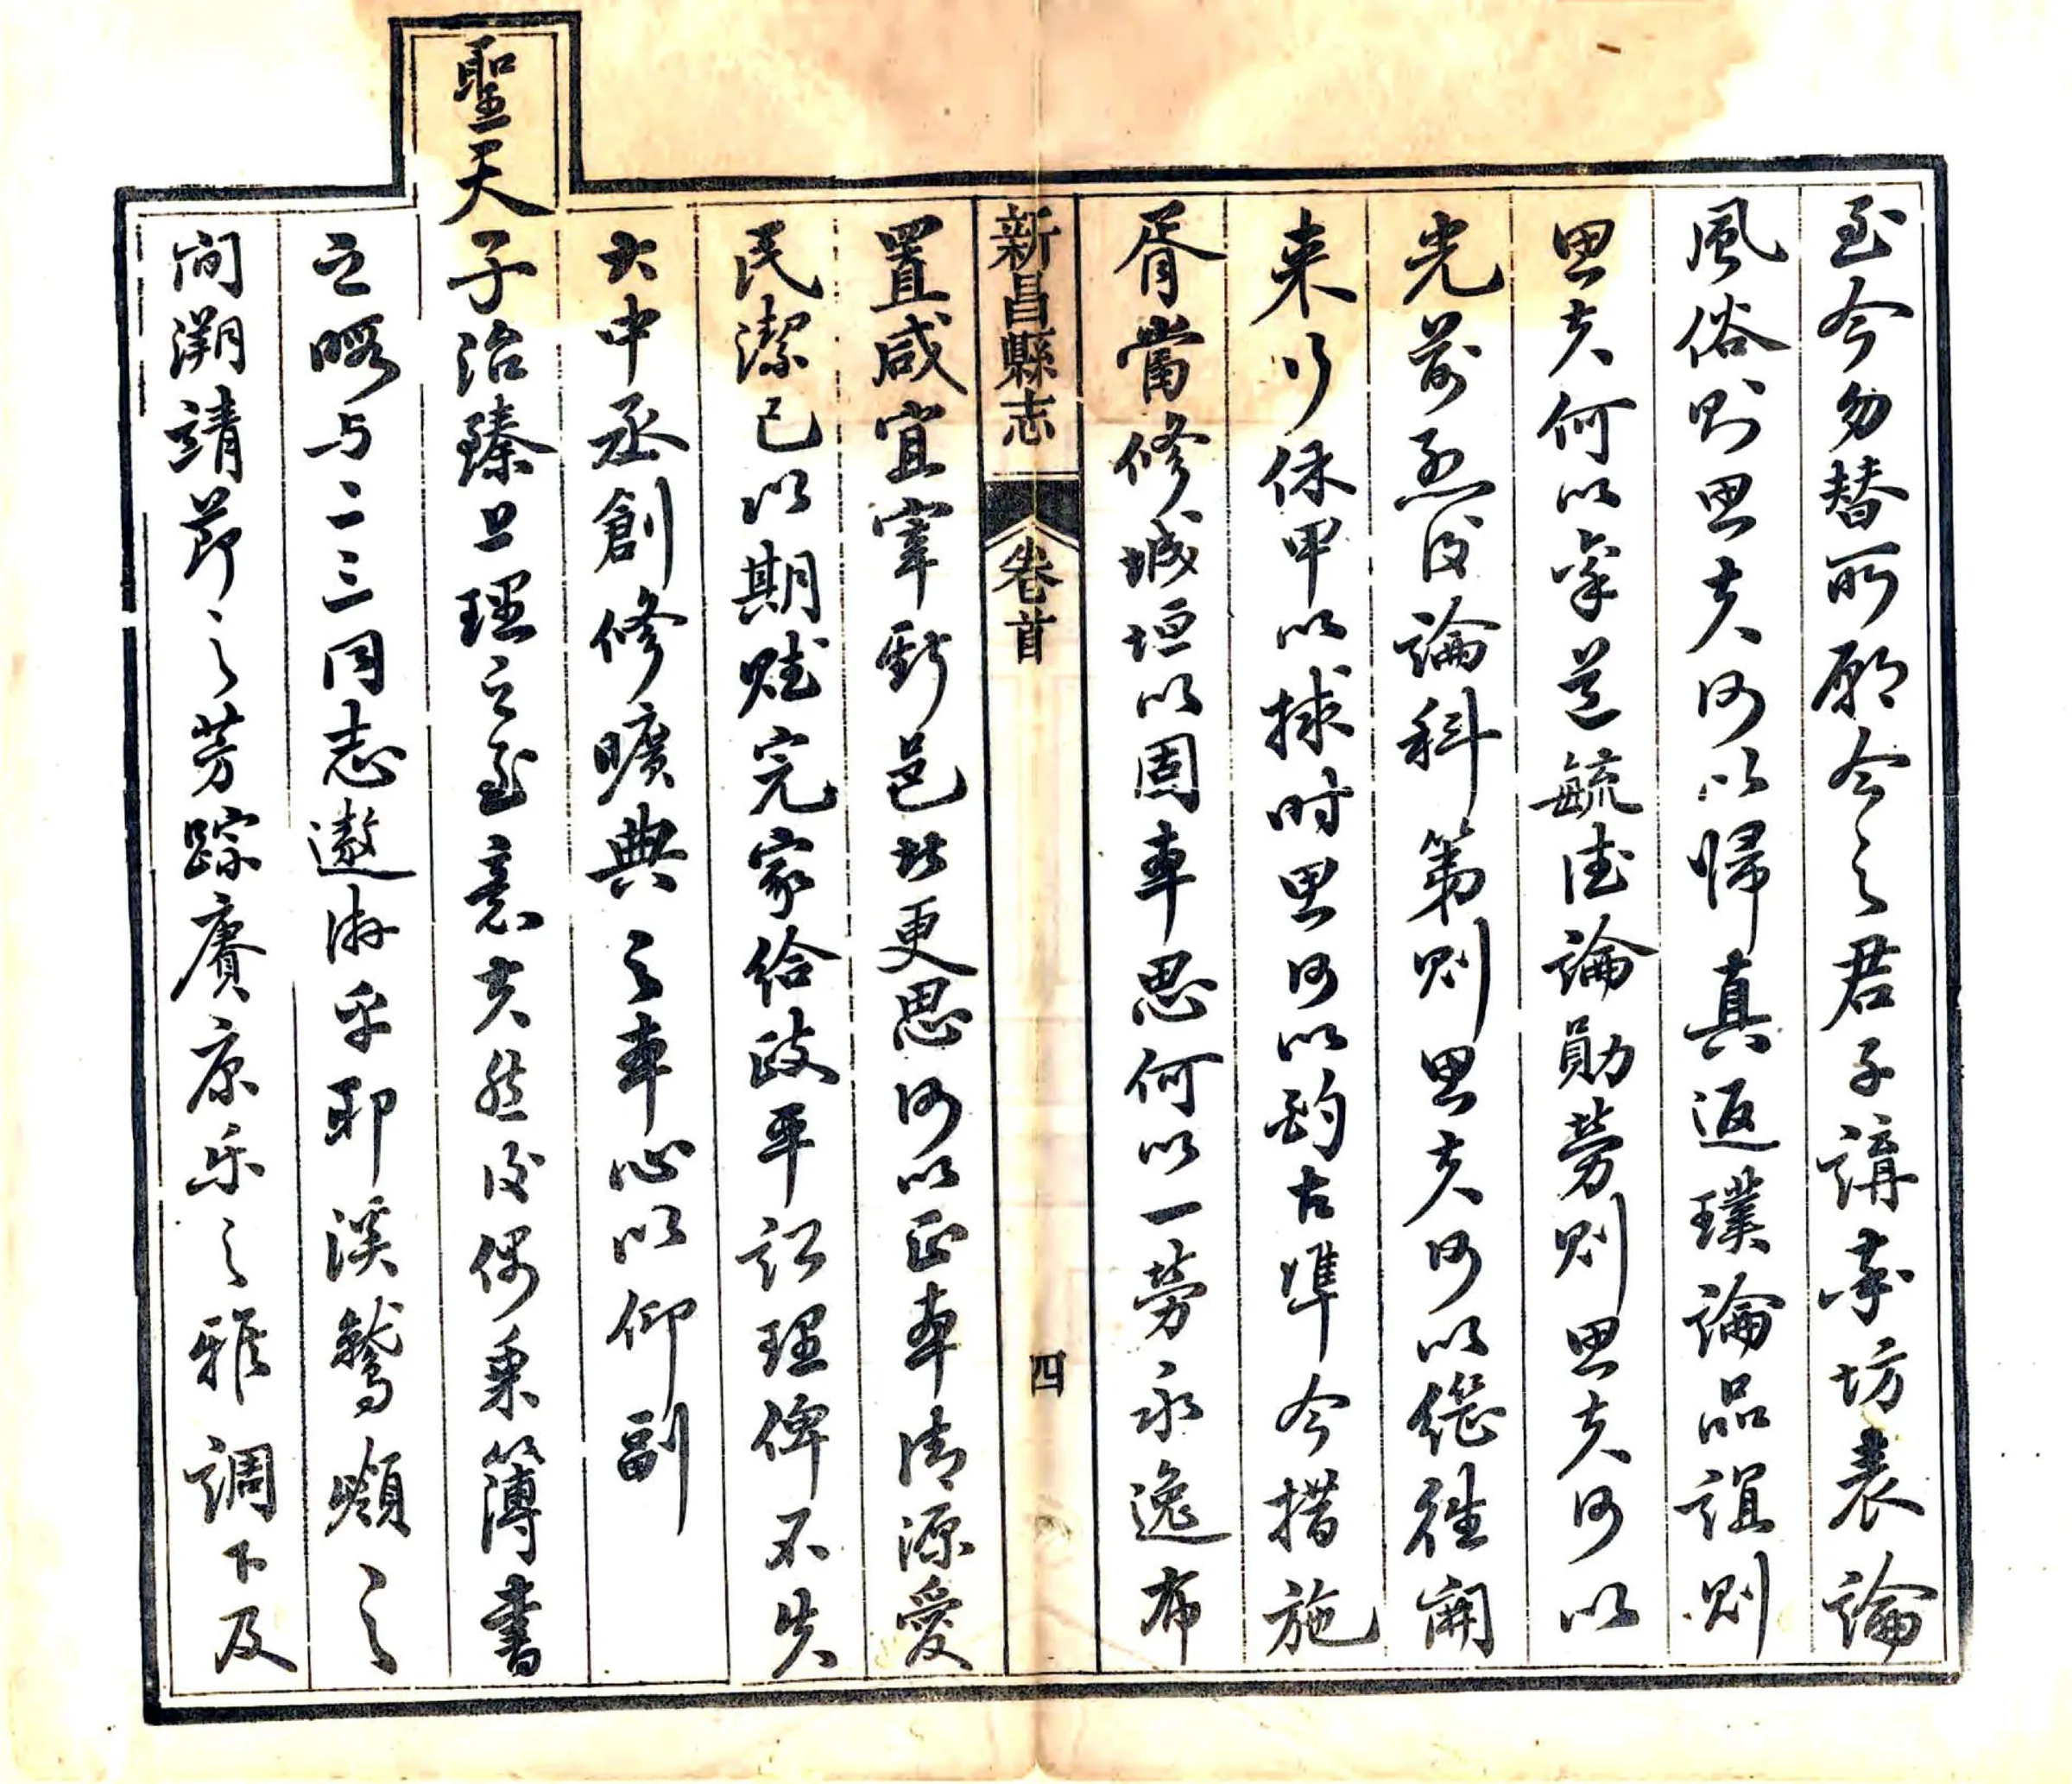 至今勿替所願今之君子講坊表論
風俗則思夫何以歸真返璞論品誼則
思夫何以道毓德論勛勞則思夫何以
光前烈後論科第則思夫何以繼往開
来行保甲以捄时思何以酌古準今措施
胥當修城垣以固本思何以一勞永逸布
新昌縣志 卷首 四
置咸宜宰斯邑者更思何以正本清源愛
民潔己以期賦完家給政平訟理俾不失
大中丞創修曠典之本心以仰副
聖天子治臻上理之至意夫然後偶乘簿書
之暇与二三同志遨遊乎耶溪鷲嶺之
間溯靖節之芳蹤賡康乐之雅調下及